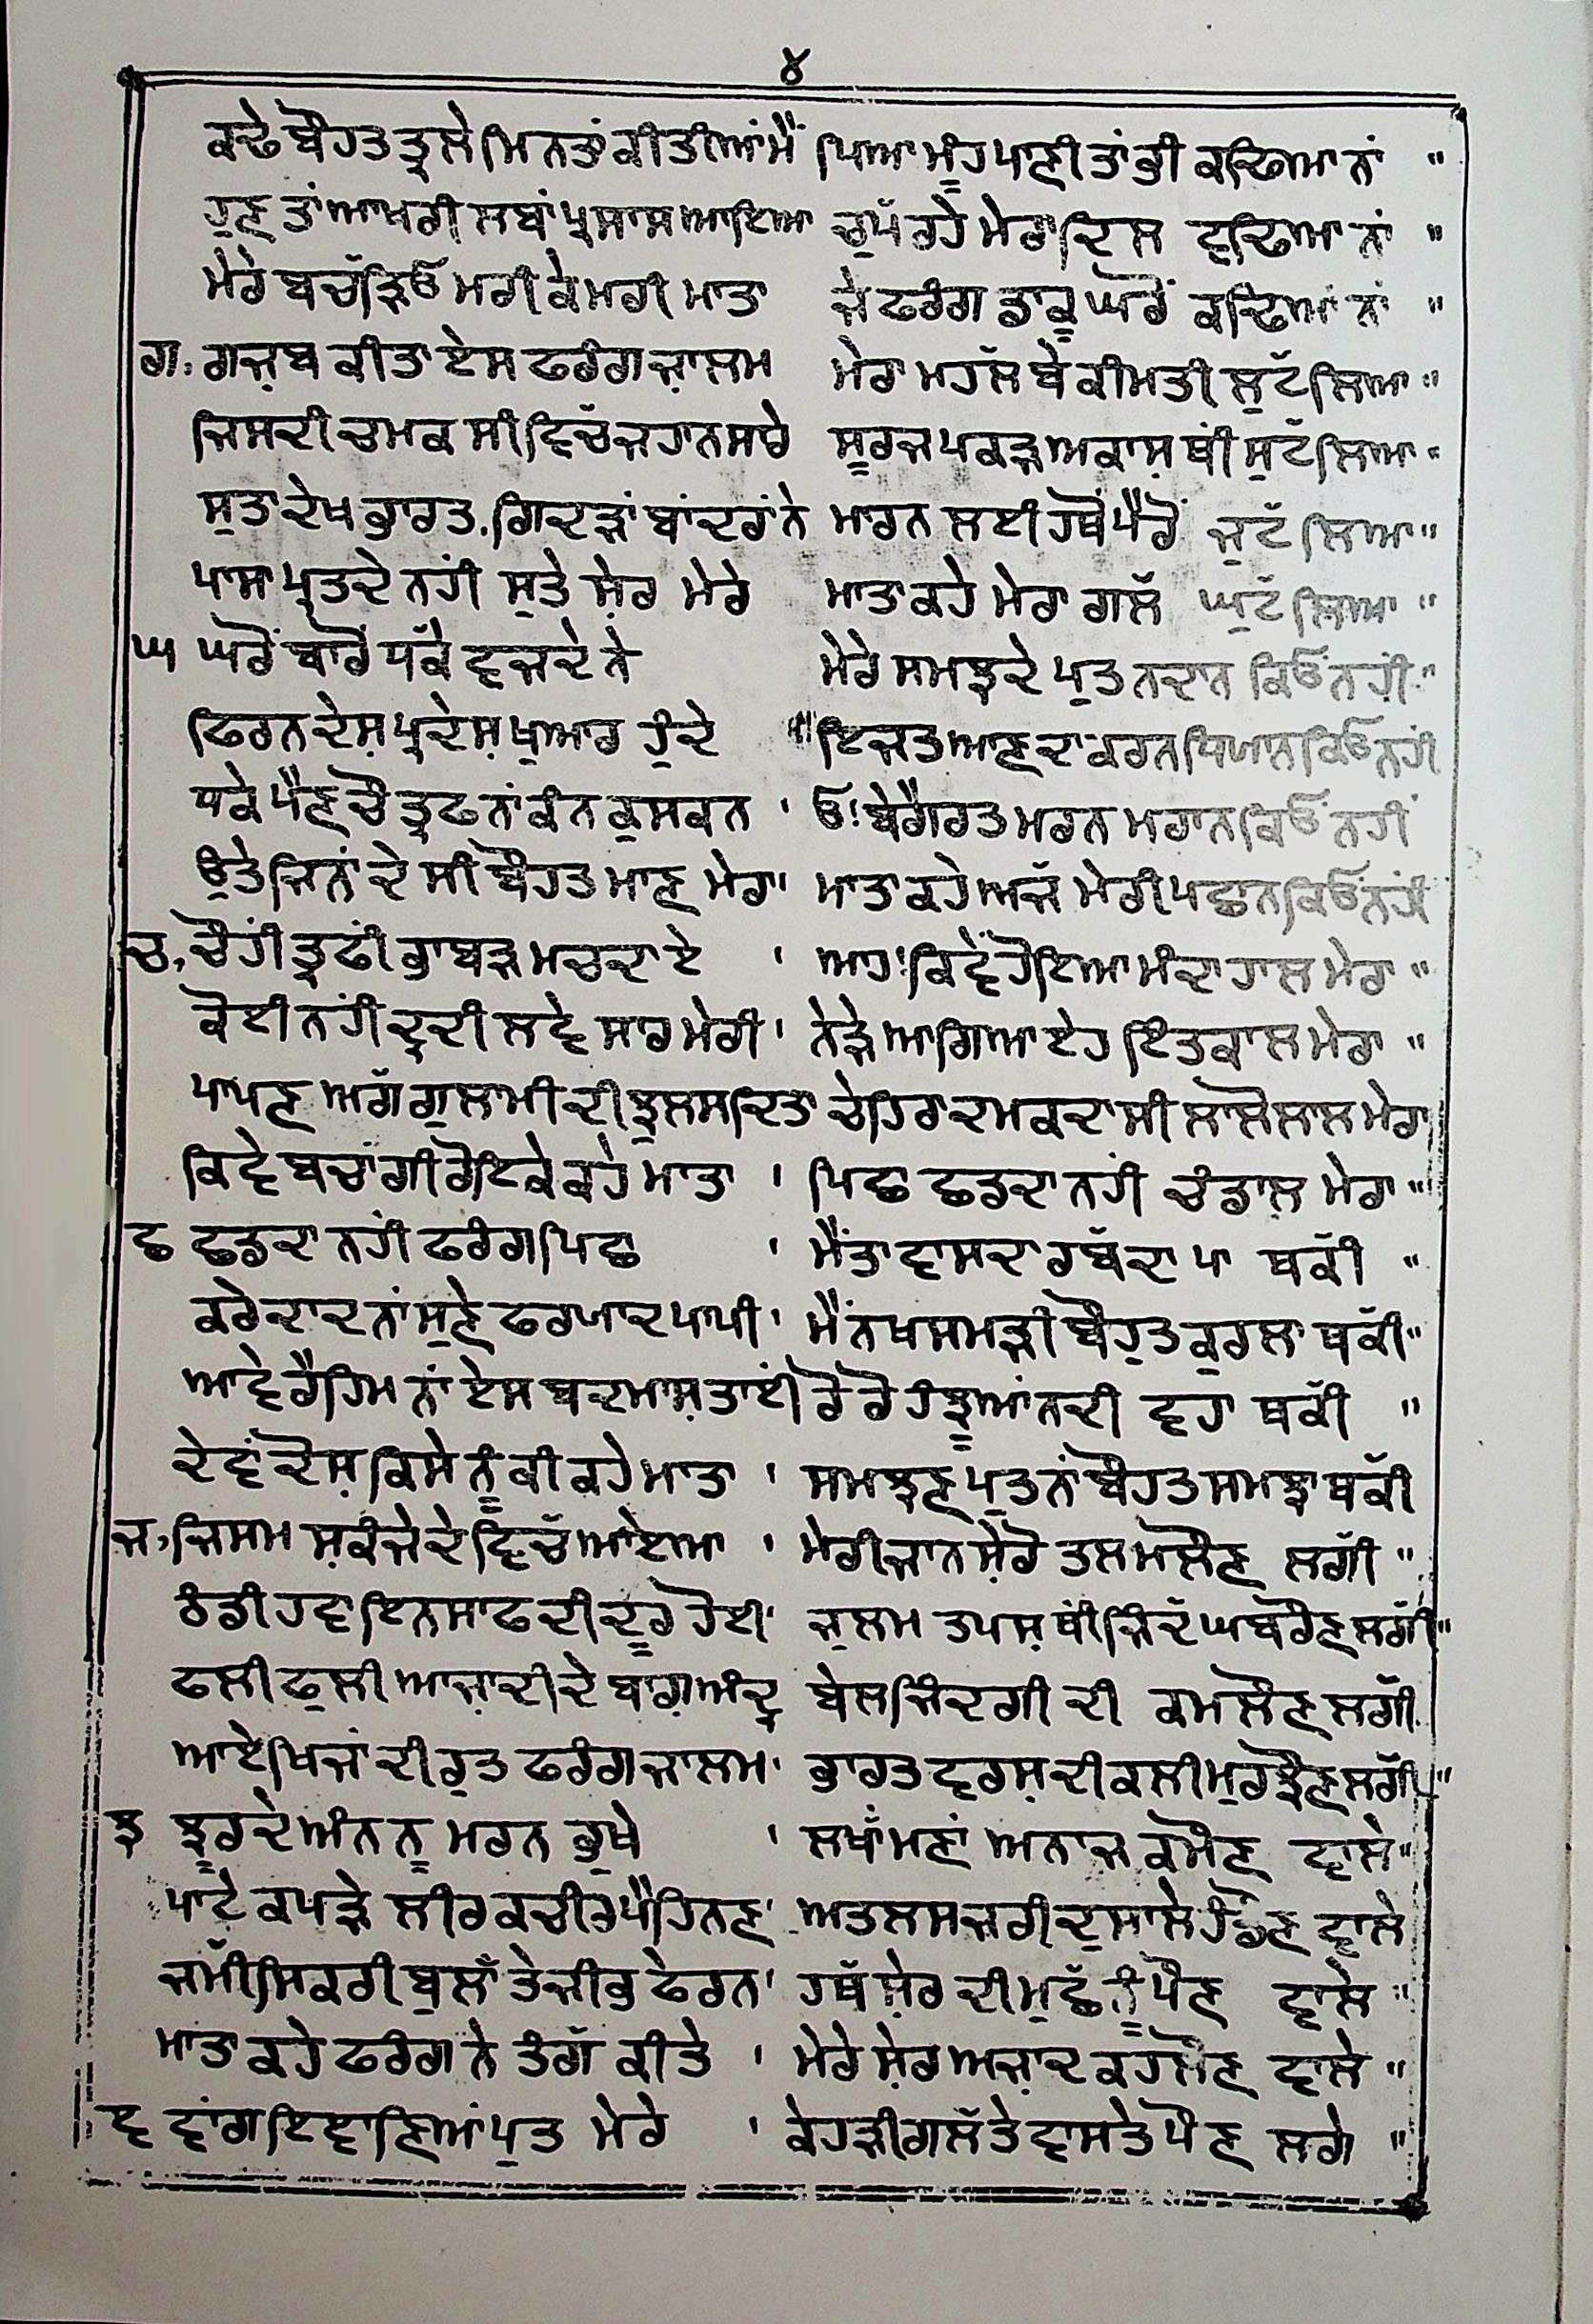 ੪
ਕਢੇ ਬੌਹਤ ਤ੍ਰਲੇ ਮਿਨਤਾਂ ਕੀਤੀਆਂ ਮੈਂ ਪਿਆ ਮੂੰਹ ਪਾਣੀ ਤਾਂ ਭੀ ਕਢਿਆ ਨਾਂ "
ਹੁਣ ਤਾਂ ਆਖਰੀ ਲਬਾਂ ਪ੍ਰ ਸਾਸ ਆਇਆ ਚੁਪੱ ਰਹੇ ਮੇਰਾ ਦਿਲ ਵਢਿਆ ਨਾਂ "
ਮੇਰੇ ਬਚੱੜਿਓ ਮਰੀ ਕੇ ਮਰੀ ਮਾਤਾ ਜੇ ਫਰੰਗ ਡਾਕੂ ਘਰੋਂ ਕਢਿਆਂ ਨਾਂ "
ਗ. ਗਜ਼ਬ ਕੀਤਾ ਏਸ ਫਰੰਗ ਜ਼ਾਲਮ ਮੇਰਾ ਮਹਲੱ ਬੇਕੀਮਤੀ ਲੁਟੱ ਲਿਆ "
ਜਿਸਦੀ ਚਮਕ ਸੀ ਵਿਚੱ ਜਹਾਨ ਸਾਰੇ ਸੂਰਜ ਪਕੜ ਅਕਾਸ਼ ਥੀਂ ਸੁਟੱ ਲਿਆ "
ਸੁਤਾ ਦੇਖ ਭਾਰਤ, ਗਿਦੜਾਂ ਬਾਂਦਰਾਂ ਨੇ ਮਾਰਨ ਲਈ ਹਥੋਂ ਪੈਰੋਂ ਜੁਟੱ ਲਿਆ "
ਪਾਸਾ ਪ੍ਰਤਦੇ ਨਹੀਂ ਸੁਤੇ ਸ਼ੇਰ ਮੇਰੇ ਮਾਤਾ ਕਹੇ ਮੇਰਾ ਗਲੱ ਘੁਟੱ ਲਿਆ "
ਘ ਘਰੋਂ ਬਾਰੋਂ ਧਕੱੇ ਵਜਦੇ ਨੇ ਮੇਰੇ ਸਮਝਦੇ ਪੁਤ ਨਦਾਨ ਕਿਓਂ ਨਹੀਂ "
ਫਿਰਨ ਦੇਸ਼ ਪ੍ਰਦੇਸ਼ ਖੁਆਰ ਹੁੰਦੇ " ਇਜਤ ਆਣ ਦਾ ਕਰਨ ਧਿਯਾਨ ਕਿਓਂ ਨਹੀਂ
ਧਕੇ ਪੈਣ ਚੌਤ੍ਰਫ ਨਾਂ ਕੰਨ ਕੁਸਕਨ ' ਓ! ਬੇਗੈਰਤ ਮਰਨ ਮਹਾਨ ਕਿਓਂ ਨਹੀਂ
ਉਤੇ ਜਿਨਾਂ ਦੇ ਸੀ ਬੌਹਤ ਮਾਣ ਮੇਰਾ' ਮਾਤਾ ਕਹੇ ਅਜੱ ਮੇਰੀ ਪਛਾਨ ਕਿਓਂ ਨਹੀਂ
ਚ, ਚੌਹੀਂ ਤ੍ਰਫੀਂ ਭਾਬੜ ਮਚਦਾ ਏ ' ਆਹ! ਕਿਵੇਂ ਹੋਇਆ ਮੰਦਾ ਹਾਲ ਮੇਰਾ "
ਕੋਈ ਨਹੀਂ ਦ੍ਰਦੀ ਲਵੇ ਸਾਰ ਮੇਰੀ ' ਨੇੜੇ ਆਗਿਆ ਏਹ ਇੰਤਕਾਲ ਮੇਰਾ "
ਪਾਪਣ ਅਗੱ ਗੁਲਾਮੀ ਦੀ ਝੁਲਸ ਦਿਤਾ ਚੇਹਿਰਾ ਦਮਕਦਾ ਸੀ ਲਾਲੋ ਲਾਲ ਮੇਰਾ
ਕਿਵੇ ਬਚਾਂਗੀ ਰੋਇਕੇ ਕਹੇ ਮਾਤਾ ' ਪਿਛਾ ਛਡਦਾ ਨਹੀਂ ਚੰਡਾਲ ਮੇਰਾ "
ਛ ਛਡਦਾ ਨਹੀਂ ਫਰੰਗ ਪਿਛਾ ' ਮੈਂ ਤਾ ਵਾਸਤਾ ਰਬੱ ਦਾ ਪਾ ਥਕੀੱ "
ਕਰੇ ਦਾਦ ਨਾਂ ਸੁਣੇ ਫਰਯਾਦ ਪਾਪੀ ' ਮੈਂ ਨਖਸਮੜੀ ਬੌਹੁਤ ਕੁਰਲਾ ਥਕੀੱ "
ਆਵੇ ਰੈਹਿਮ ਨਾਂ ਏਸ ਬਦਮਾਸ਼ ਤਾਈਂ ਰੋ ਰੋ ਹੰਝੂਆਂ ਨਦੀ ਵਹਾ ਥਕੀੱ "
ਦੇਵਾਂ ਦੋਸ਼ ਕਿਸੇ ਨੂੰ ਕੀ ਕਹੇ ਮਾਤਾ ' ਸਮਝਣ ਪੁਤ ਨਾਂ ਬੌਹਤ ਸਮਝਾ ਥਕੀੱ
ਜ, ਜਿਸਮ ਸ਼ਕੰਜੇ ਦੇ ਵਿਚੱ ਆਏਆ ' ਮੇਰੀ ਜਾਨ ਸ਼ੇਰੋ ਤਲਮਲੌਣ ਲਗੀੱ "
ਠੰਡੀ ਹਵਾ ਇਨਸਾਫ ਦੀ ਦੂਰ ਹੋਈ' ਜ਼ੁਲਮ ਤਪਸ਼ ਥੀਂ ਜਿੰਦੱ ਘਬਰੌਣ ਲਗੀੱ "
ਫਲੀ ਫੁਲੀ ਆਜ਼ਾਦੀ ਦੇ ਬਾਗ਼ ਅੰਦ੍ਰ ਬੇਲ ਜ਼ਿੰਦਗੀ ਦੀ ਕਮਲੌਣ ਲਗੀੱ.
ਆਏ ਖਿਜਾਂ ਦੀ ਰੁਤ ਫਰੰਗ ਜਾਲਮ ' ਭਾਰਤ ਵਰਸ਼ ਦੀ ਕਲੀ ਮੁਰਝੌਣ ਲਗੀੱ "
ਝ ਝੂਰਦੇ ਅੰਨ ਨੂ ਮਰਨ ਭੁਖੇ ' ਲਖਾਂ ਮਣਾਂ ਅਨਾਜ ਕਮੌਣ ਵਾਲੇ "
ਪਾਟੇ ਕਪੜੇ ਲੀਰ ਕਚੀਰ ਪੈਹਿਨਣ' ਅਤਲਸ ਜ਼ਰੀ ਦੁਸਾਲੇ ਹੰਡੌਣ ਵਾਲੇ
ਜਮੀੱ ਸਿਕਰੀ ਬੁਲਾਂ ਤੇ ਜੀਭ ਫੇਰਨ' ਹਥੱ ਸ਼ੇਰ ਦੀ ਮੁਛੱ ਨੂੰ ਪੌਣ ਵਾਲੇ "
ਮਾਤਾ ਕਹੇ ਫਰੰਗ ਨੇ ਤੰਗੱ ਕੀਤੇ ' ਮੇਰੇ ਸ਼ੇਰ ਅਜ਼ਾਦ ਕਹਲੌਣ ਵਾਲੇ "
ਵ ਵਾਂਗ ਇਵਾਣਿਆਂ ਪੁਤ ਮੇਰੇ ' ਕੇਹੜੀ ਗਲੱ ਤੇ ਵਾਸਤੇ ਪੌਣ ਲਗੇ "